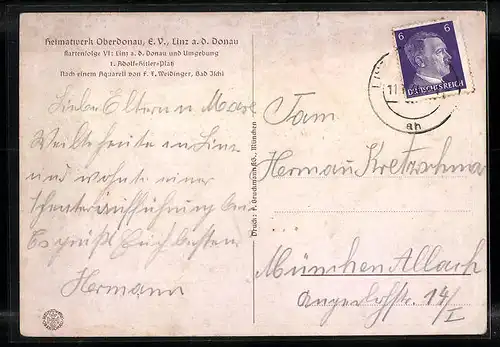 Heimatwerk Oberdonau, E. V., Linz a. d. Donau
Kartenfolge VI: Linz a. d. Donau und Umgebung
1. Adolf-Hitler-Platz
Nach einem Aquarell von F. X. Weidinger, Bad Ischl
Liebe Eltern u
Weilte heute in Linz
und wohnte einer
Theateraufführung bei
Es grüßt Euch bestens
Hermann
Druck: F. Bruckmann KG., München
6 6
DEUTSCHES REICH
ah
Fam
Hermann Kretzschmar
München Allach
14/I